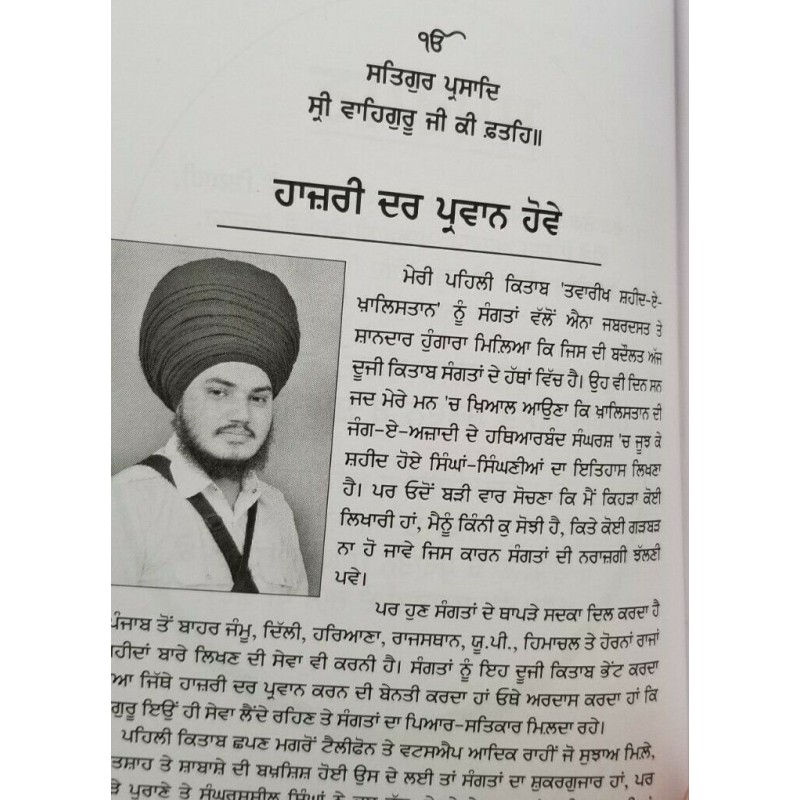 ੴ
ਸਤਿਗੁਰ ਪ੍ਰਸਾਦਿ
ਸ੍ਰੀ ਵਾਹਿਗੁਰੂ ਜੀ ਕੀ ਫ਼ਤਹਿ॥
ਹਾਜ਼ਰੀ ਦਰ ਪ੍ਰਵਾਨ ਹੋਵੇ
ਮੇਰੀ ਪਹਿਲੀ ਕਿਤਾਬ 'ਤਵਾਰੀਖ ਸ਼ਹੀਦ-ਏ-
ਖ਼ਾਲਿਸਤਾਨ' ਨੂੰ ਸੰਗਤਾਂ ਵੱਲੋਂ ਐਨਾ ਜਬਰਦਸਤ ਤੇ
ਸ਼ਾਨਦਾਰ ਹੁੰਗਾਰਾ ਮਿਲਿਆ ਕਿ ਜਿਸ ਦੀ ਬਦੌਲਤ ਅੱਜ
ਦੂਜੀ ਕਿਤਾਬ ਸੰਗਤਾਂ ਦੇ ਹੱਥਾਂ ਵਿੱਚ ਹੈ। ਉਹ ਵੀ ਦਿਨ ਸਨ
ਜਦ ਮੇਰੇ ਮਨ 'ਚ ਖ਼ਿਆਲ ਆਉਣਾ ਕਿ ਖ਼ਾਲਿਸਤਾਨ ਦੀ
ਜੰਗ-ਏ-ਅਜ਼ਾਦੀ ਦੇ ਹਥਿਆਰਬੰਦ ਸੰਘਰਸ਼ 'ਚ ਜੂਝ ਕੇ
ਸ਼ਹੀਦ ਹੋਏ ਸਿੰਘਾਂ-ਸਿੰਘਣੀਆਂ ਦਾ ਇਤਿਹਾਸ ਲਿਖਣਾ
ਹੈ। ਪਰ ਓਦੋਂ ਬੜੀ ਵਾਰ ਸੋਚਣਾ ਕਿ ਮੈਂ ਕਿਹੜਾ ਕੋਈ
ਲਿਖਾਰੀ ਹਾਂ, ਮੈਨੂੰ ਕਿੰਨੀ ਕੁ ਸੋਝੀ ਹੈ, ਕਿਤੇ ਕੋਈ ਗੜਬੜ
ਨਾ ਹੋ ਜਾਵੇ ਜਿਸ ਕਾਰਨ ਸੰਗਤਾਂ ਦੀ ਨਰਾਜ਼ਗੀ ਝੱਲਣੀ
ਪਵੇ।
ਪਰ ਹੁਣ ਸੰਗਤਾਂ ਦੇ ਥਾਪੜੇ ਸਦਕਾ ਦਿਲ ਕਰਦਾ ਹੈ
ਪੰਜਾਬ ਤੋਂ ਬਾਹਰ ਜੰਮੂ, ਦਿੱਲੀ, ਹਰਿਆਣਾ, ਰਾਜਸਥਾਨ, ਯੂ.ਪੀ., ਹਿਮਾਚਲ ਤੇ ਹੋਰਨਾਂ ਰਾਜਾਂ
ਬਾਰੇ ਲਿਖਣ ਦੀ ਸੇਵਾ ਵੀ ਕਰਨੀ ਹੈ। ਸੰਗਤਾਂ ਨੂੰ ਇਹ ਦੂਜੀ ਕਿਤਾਬ ਭੇਂਟ ਕਰਦਾ
ਜਿੱਥੇ ਹਾਜ਼ਰੀ ਦਰ ਪ੍ਰਵਾਨ ਕਰਨ ਦੀ ਬੇਨਤੀ ਕਰਦਾ ਹਾਂ ਓਥੇ ਅਰਦਾਸ ਕਰਦਾ ਹਾਂ ਕਿ
ਗੁਰੂ ਇਉਂ ਹੀ ਸੇਵਾ ਲੈਂਦੇ ਰਹਿਣ ਤੇ ਸੰਗਤਾਂ ਦਾ ਪਿਆਰ-ਸਤਿਕਾਰ ਮਿਲਦਾ ਰਹੇ।
ਪਹਿਲੀ ਕਿਤਾਬ ਛਪਣ ਮਗਰੋਂ ਟੈਲੀਫੋਨ ਤੇ ਵਟਸਐਪ ਆਦਿਕ ਰਾਹੀਂ ਜੋ ਸੁਝਾਅ ਮਿਲੇ,
ਤੇ ਸ਼ਾਬਾਸ਼ੇ ਦੀ ਬਖ਼ਸ਼ਿਸ਼ ਹੋਈ ਉਸ ਦੇ ਲਈ ਤਾਂ ਸੰਗਤਾਂ ਦਾ ਸ਼ੁਕਰਗੁਜਾਰ ਹਾਂ, ਪਰ
ਪੁਰਾਣੇ ਤੇ ਸੰਘਰਸ਼ਸ਼ੀਲ ਸਿੰਘਾਂ ਨੇ